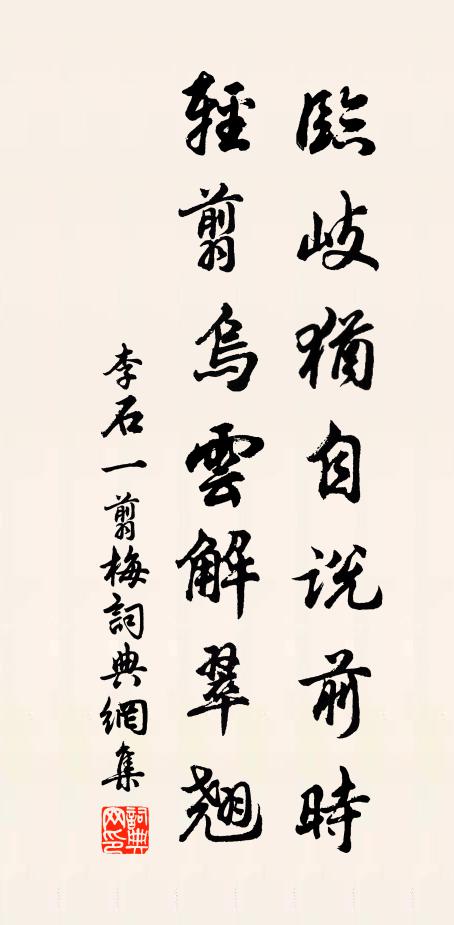 臨歧猶自說前時
輕翦烏雲解翠翹
李石一翦梅詞典網集
詞典網印